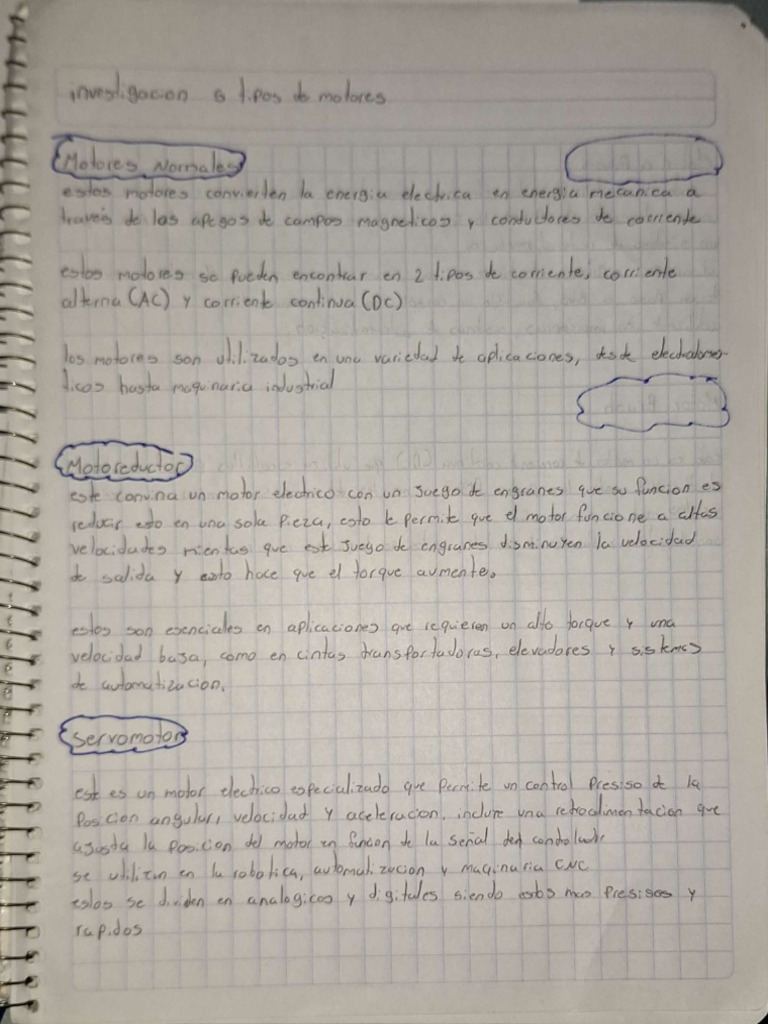 investigacion 6 tipos de motores
Motores Normales
estos motores convierten la energia electrica en energia mecanica a
traves de los apegos de campos magneticos y conductores de corriente
estos motores se pueden encontrar en 2 tipos de corriente; corriente
alterna (AC) y corriente continua (DC)
los motores son utilizados en una variedad de aplicaciones, desde electrodomes-
ticos hasta maquinaria industrial
Motoreductor
este convina un motor electrico con un juego de engranes que su funcion es
reducir esto en una sola pieza, esto le permite que el motor funcione a altas
velocidades mientas que este juego de engranes disminuyen la velocidad
de salida y esto hace que el torque aumente.
estos son esenciales en aplicaciones que requieren un alto torque y una
velocidad baja, como en cintas transportadoras, elevadores y sistemas
de automatizacion.
Servomotor
este es un motor electrico especializado que permite un control presiso de la
posicion angular, velocidad y aceleracion, incluye una retroalimentacion que
ajusta la posicion del motor en funcon de la señal del
se utilizan en la robotica, automatizacion y maquinaria CNC
estos se dividen en analogicos y digitales siendo estos mas presisos y
rapidos